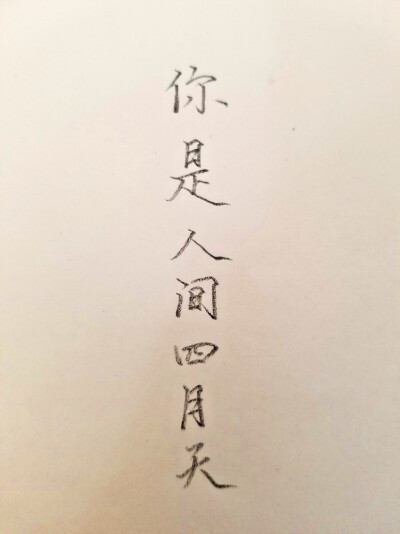 你是人间四月天